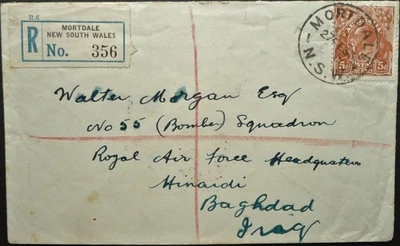 R.6
MORTDALE
NEW SOUTH WALES
R No. 356
MORTDALE
N.S.W
5D 5D
Walter Morgan Esq
No 55 (Bombe) Squadron
Royal Air Force Headquaters
Hinaidi
Baghdad
Iraq